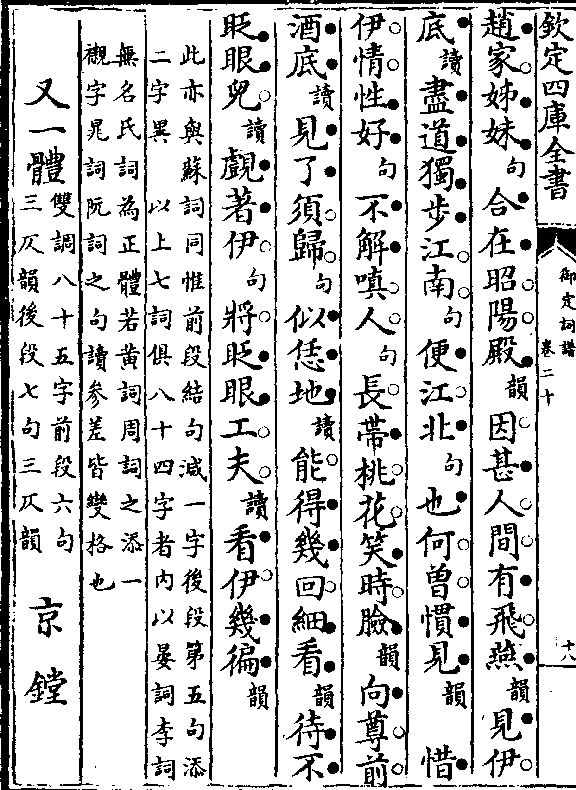 欽定四庫全書
御定詞譜
卷二十
十八
趙家姊妹句合在昭陽殿韻因甚人間有飛燕韻見伊
底讀盡道獨步江南句便江北句也何曾慣見韻惜
伊情性好句不解嗔人句長帶桃花笑時臉韻向尊前
酒底讀見了須歸句似恁地讀能得幾回細看韻待不
眨眼兒讀覷著伊句將眨眼工夫讀看伊幾徧韻
此亦與蘇詞同惟前段結句減一字後段第五句添
二字異以上七詞俱八十四字者内以晏詞李詞
無名氏詞為正體若黄詞周詞之添一
襯字晁詞阮詞之句讀參差皆變格也
又一體雙調八十五字前段六句
三仄韻後段七句三仄韻京鏜